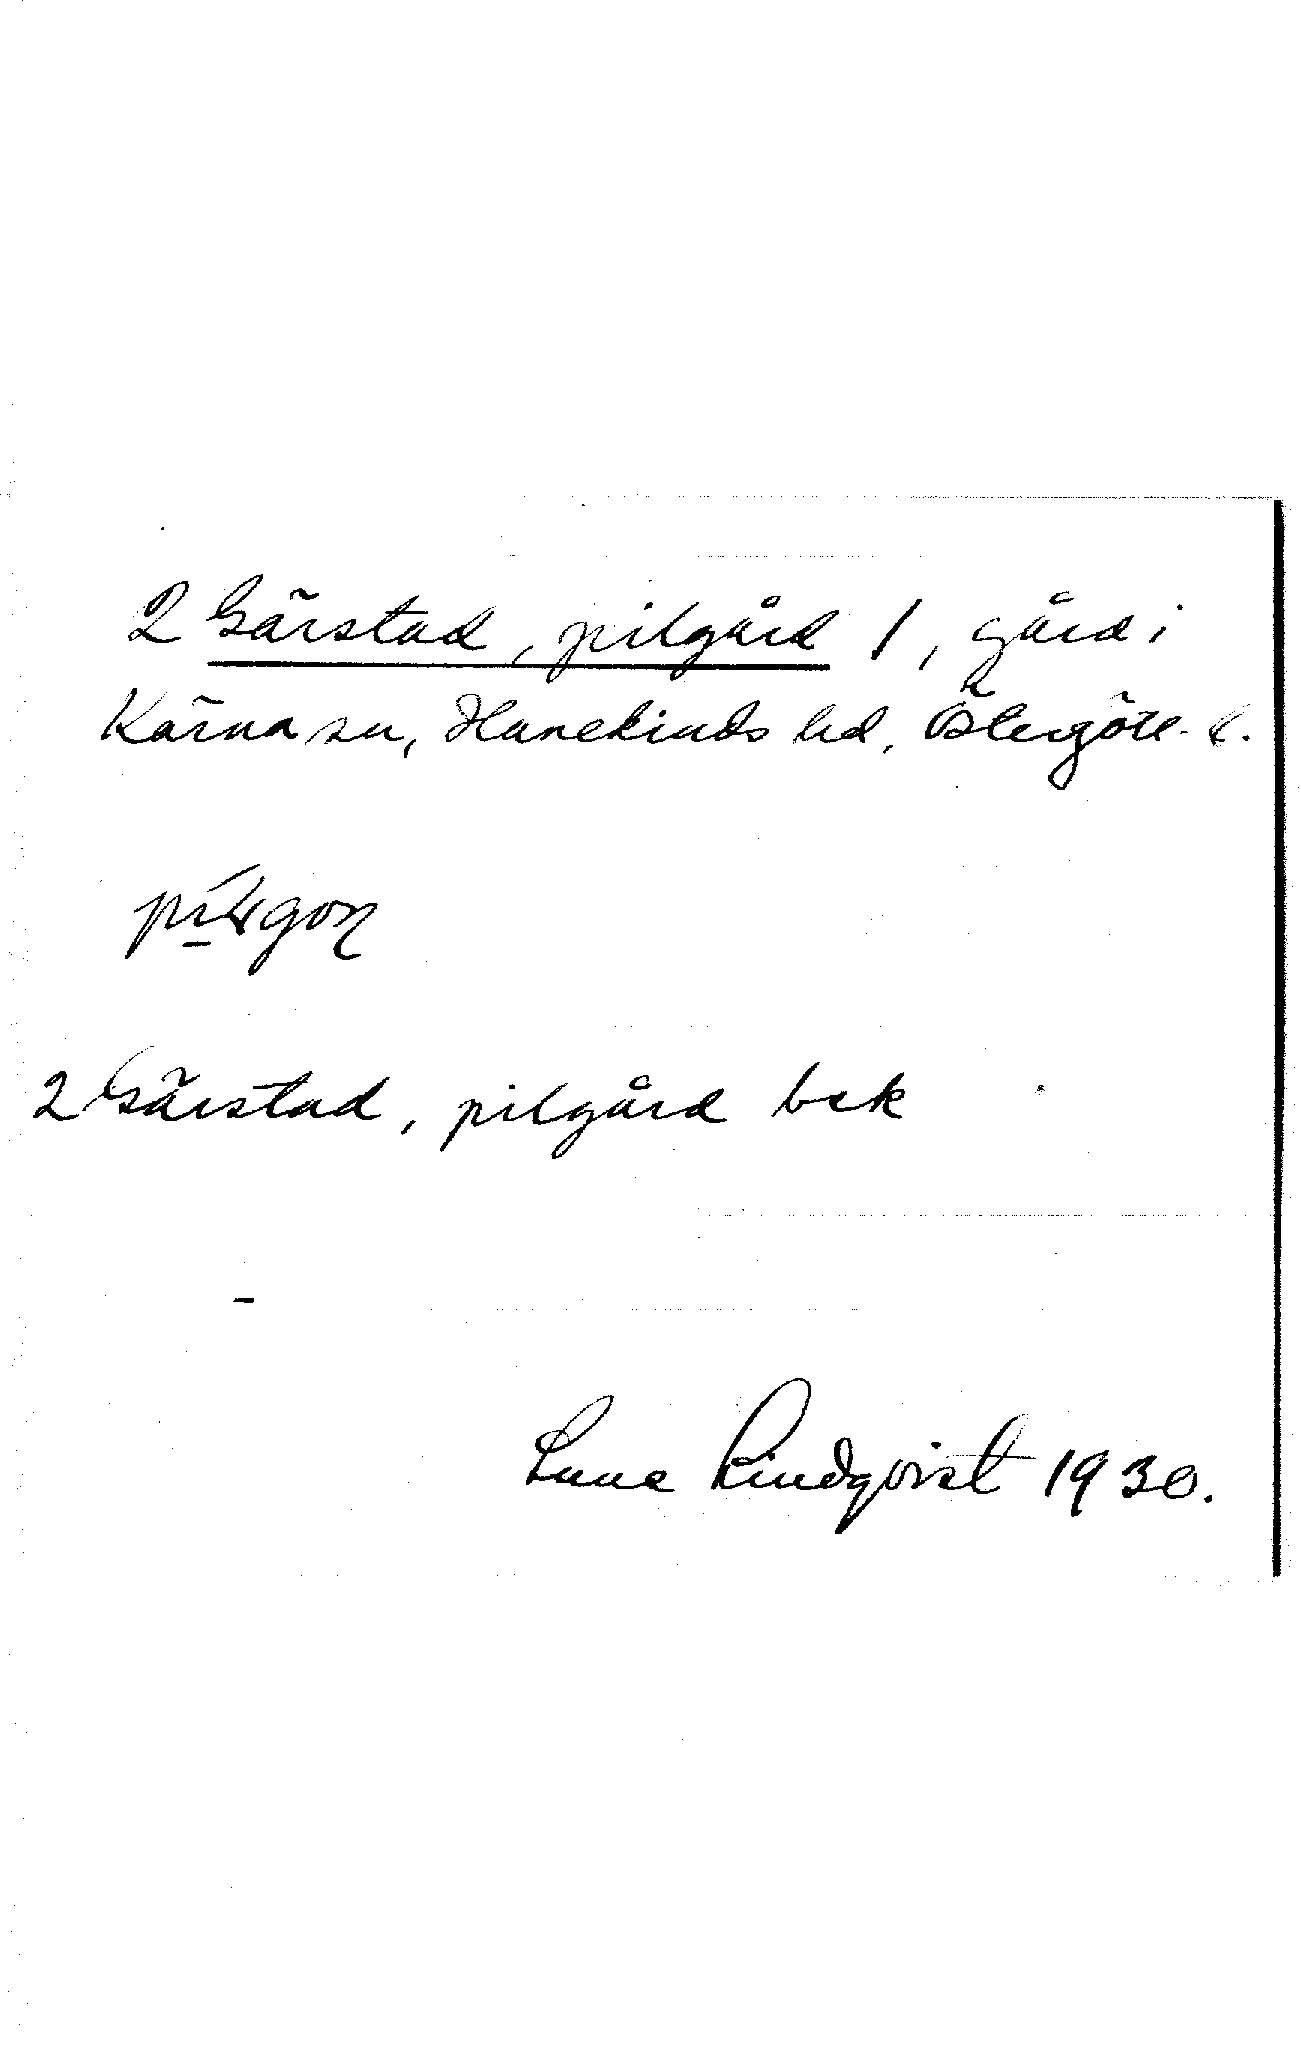 2 Gärstad, pilgård 1, gård i
Kärna sn, Hanekinds hd, Östergötl. l.
2 Gärstad, pilgård bek
–
Sune Lindqvist 1930.